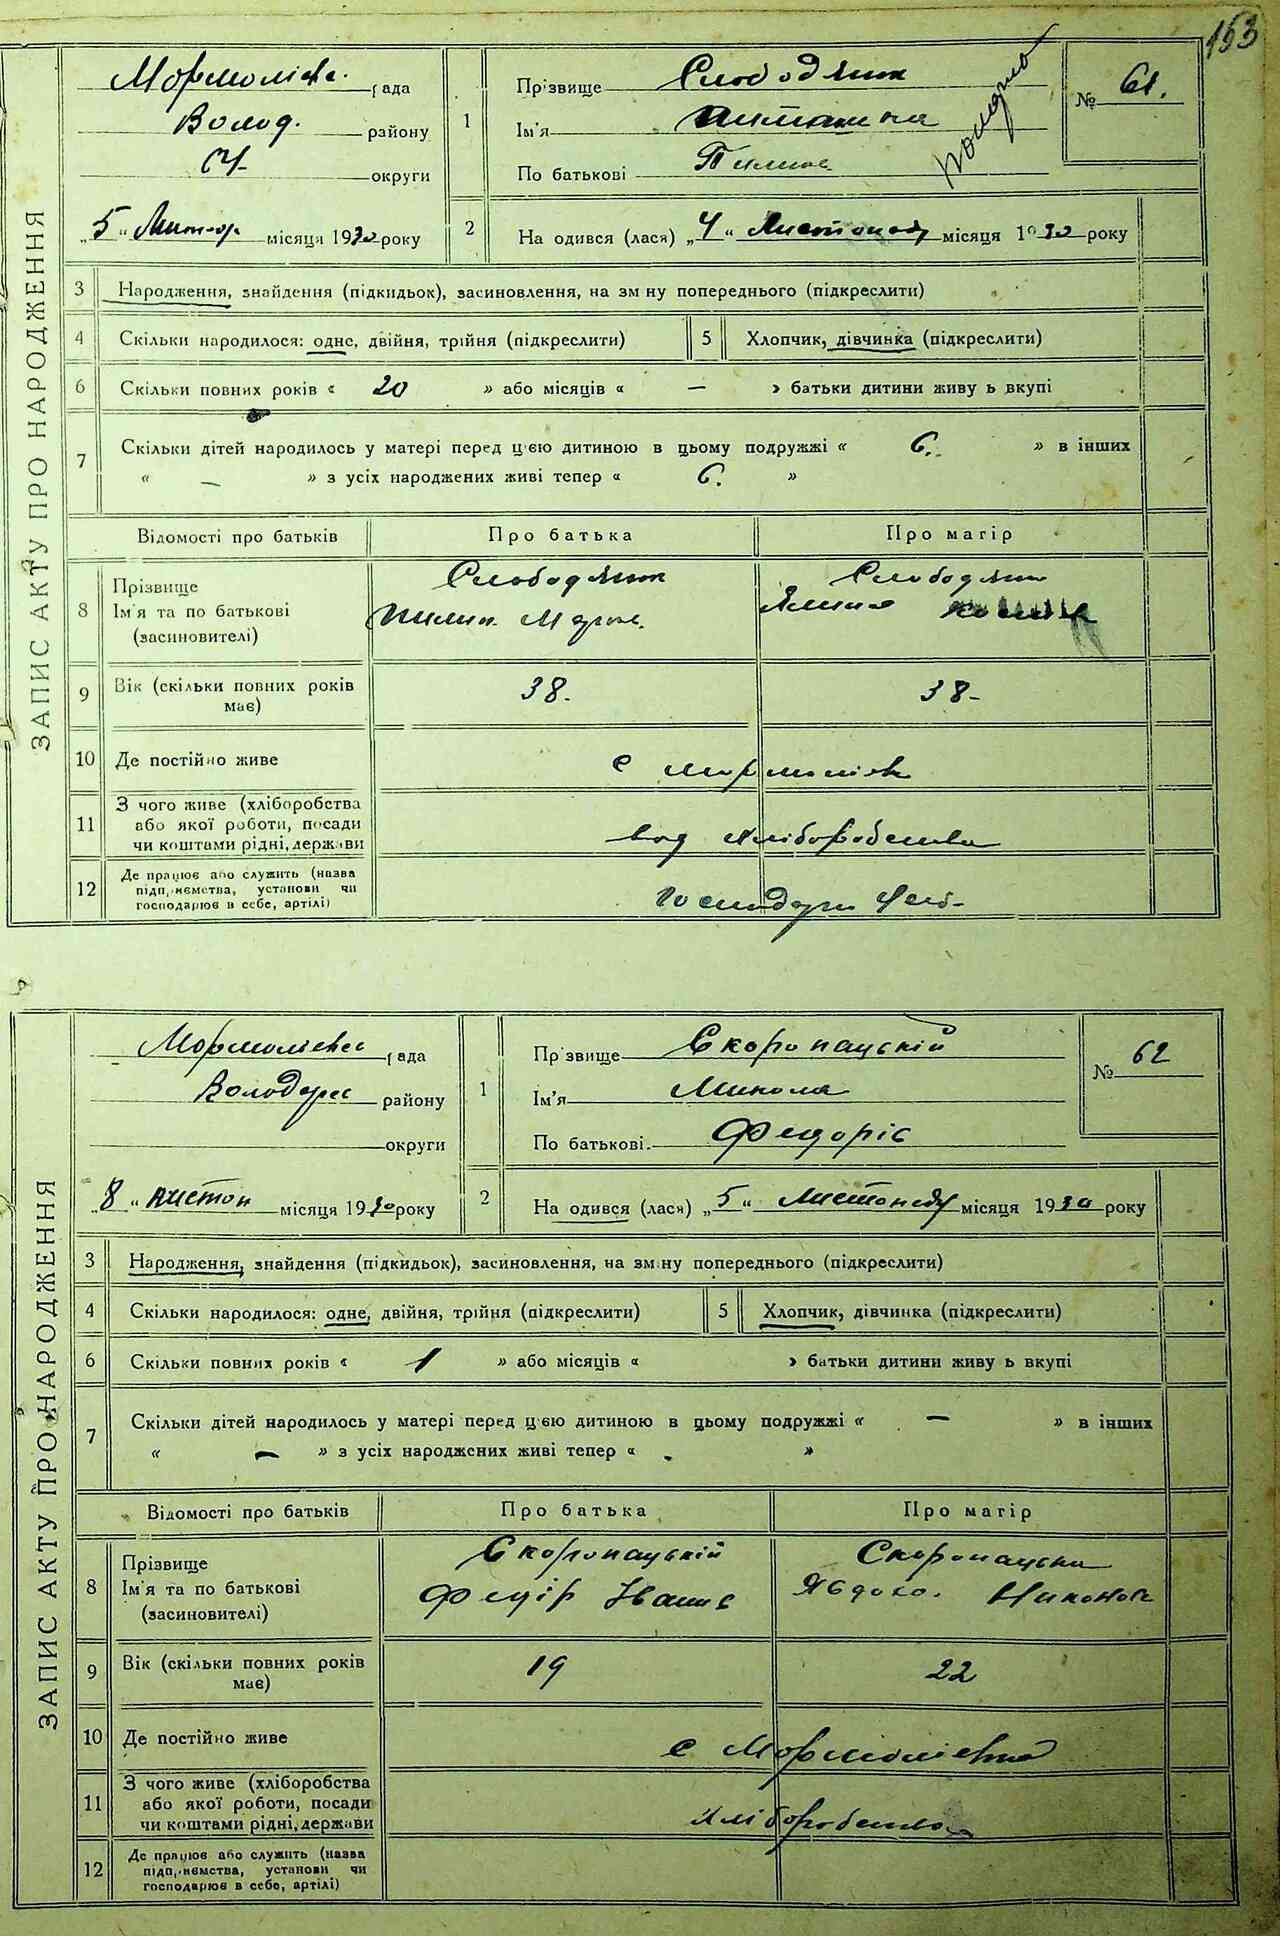 153
ЗАПИС АКТУ ПРО НАРОДЖЕННЯ
Мормоліїв. рада
Волод. району
округи
„5“ місяця 1930 року
1
Прізвище Слободянюк
Ім'я
По батькові Пилип.
№ 61.
2
На одився (лася) „4“ Листопаду місяця 1930 року
3 Народження, знайдення (підкидьок), засиновлення, на зм ну попереднього (підкреслити)
4 Скільки народилося: одне, двійня, трійня (підкреслити) 5 Хлопчик, дівчинка (підкреслити)
6 Скільки повних років « 20 » або місяців « — » батьки дитини живу ь вкупі
7 Скільки дітей народилось у матері перед цією дитиною в цьому подружжі « 6. » в інших
« — » з усіх народжених живі тепер « 6. »
Відомості про батьків Про батька Про матір
8 Прізвище Слободянюк Слободянюк
Ім'я та по батькові Пилип
(засиновителі)
9 Вік (скільки повних років має) 38. 38-
10 Де постійно живе с
11 З чого живе (хліборобства або якої роботи, посади чи коштами рідні, держави від хліборобства
12 Де працює або служить (назва підприємства, установи чи господарює в себе, артілі)
ЗАПИС АКТУ ПРО НАРОДЖЕННЯ
рада
району
округи
„8“ листоп місяця 1930 року
1
Прізвище Скоропацькій
Ім'я Микола
По батькові Федорів
№ 62
2
На одився (лася) „5“ Листопаду місяця 1930 року
3 Народження, знайдення (підкидьок), засиновлення, на зм ну попереднього (підкреслити)
4 Скільки народилося: одне, двійня, трійня (підкреслити) 5 Хлопчик, дівчинка (підкреслити)
6 Скільки повних років « 1 » або місяців « » батьки дитини живу ь вкупі
7 Скільки дітей народилось у матері перед цією дитиною в цьому подружжі « — » в інших
« — » з усіх народжених живі тепер « »
Відомості про батьків Про батька Про матір
8 Прізвище Скоропацькій Скоропацька
Ім'я та по батькові Федір Іванив Явдохо.
(засиновителі)
9 Вік (скільки повних років має) 19 22
10 Де постійно живе с
11 З чого живе (хліборобства або якої роботи, посади чи коштами рідні, держави хліборобства
12 Де працює або служить (назва підприємства, установи чи господарює в себе, артілі)